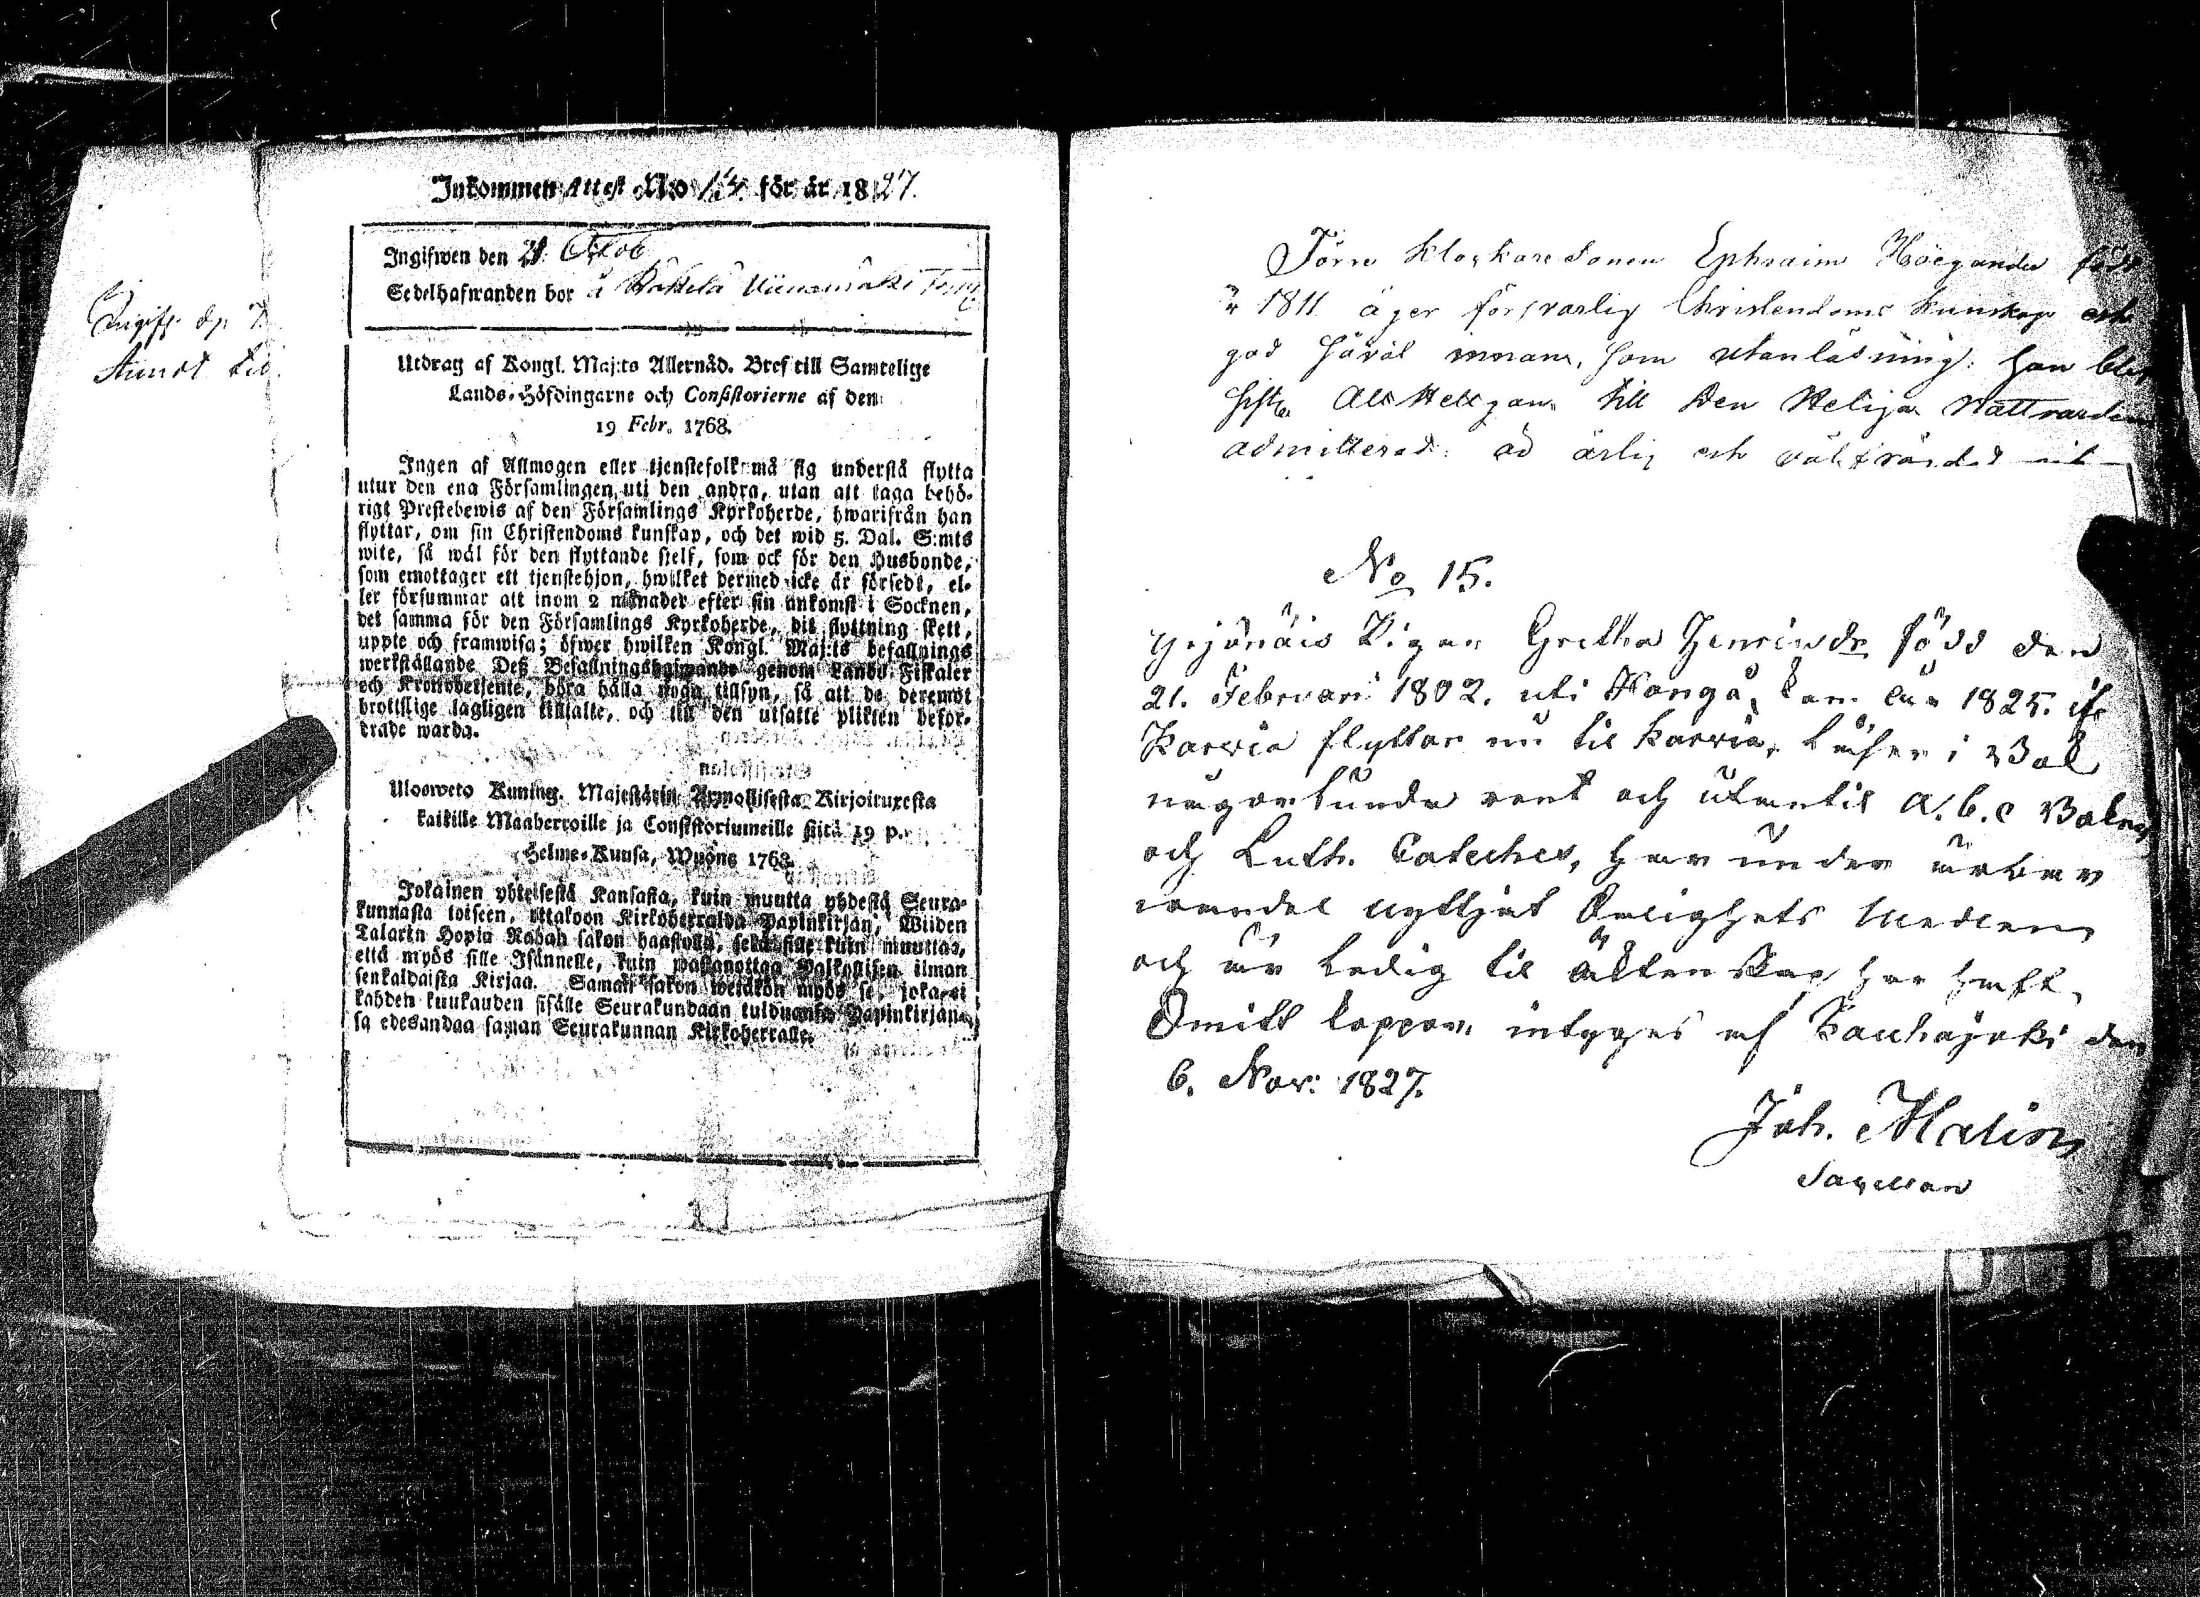 Inkommen Attest No 14 för år 1827.
Ingifwen den 21 Octob
Sedelhafwanden bor å
Utdrag af Kongl. Maj:ts Allernåd. Bref till Samtelige
Lands-Höfdingarne och Consistorierne af den
19 Febr. 1768.
Ingen af Allmogen eller tjenstefolk må sig understå flytta
utur den ena Församlingen uti den andra, utan att taga behö-
rigt Prestebewis af den Församlings Kyrkoherde, hwarifrån han
flyttar, om sin Christendoms kunskap, och det wid 5. Dal. S:mts
wite, så wäl för den flyttande sielf, som ock för den Husbonde,
som emottager ett tjenstehjon, hwilket dermed icke är försedt, el-
ler försummar att inom 2 månader efter sin ankomst i Socknen,
det samma för den Församlings Kyrkoherde, dit flyttning skett,
uppte och framwisa; öfwer hwilken Kongl. Maj:ts befallnings
werkställande Deß Befallningshafwande genom Lands-Fiskaler
och Kronobetjente, böra hålla noga tillsyn, så att de deremot
brottslige lagligen tilltalte, och till den utsatte plikten befor-
drade warda.
Ulosweto Kuning. Majestätin Armollisesta Kirjoituxesta
kaikille Maaherroille ja Consistoriumeille siitä 19 p.
Helme-Kuusa, Wuonna 1768.
Jokainen yhteisestä Kansasta, kuin muutta yhdestä Seura-
kunnasta toiseen, ottakoon Kirkoherralda Papinkirjan, Wiiden
Talarin Hopia Rahan sakon haastolla, sekä sille kuin muuttaa,
että myös sille Isännelle, kuin wastanottaa Palkollisen ilman
senkaldaista Kirjaa. Saman sakon wetäkön myös se, joka ei
kahden kuukauden sisälle Seurakundaan tulduansa Papinkirjan-
sa edesandaa saman Seurakunnan Kirkoherralle.
Klockare Sonen Ephraim född
1811 äger försvarlig Christendoms kunskap och
god såväl innan, som utanläsning. han blef
sistl. till den Heliga Nattvarden
admitterad. ärlig och
No 15.
Pigan Gretha Henricsdr född den
21. Februari 1802. uti Kangå, kom 1825. ifr
Karvia flyttar nu til Karvia, läser i Bok
någorlunda rent och utantil A. b. c Boken
och Luth. Cateches, har under ärbar
wandel nyttjat Salighets Medlen
och är ledig til Äktenskap har haft
Smitt koppor, intygges af Kauhajoki den
6. Nov: 1827.
Joh. Malin
Sacellan